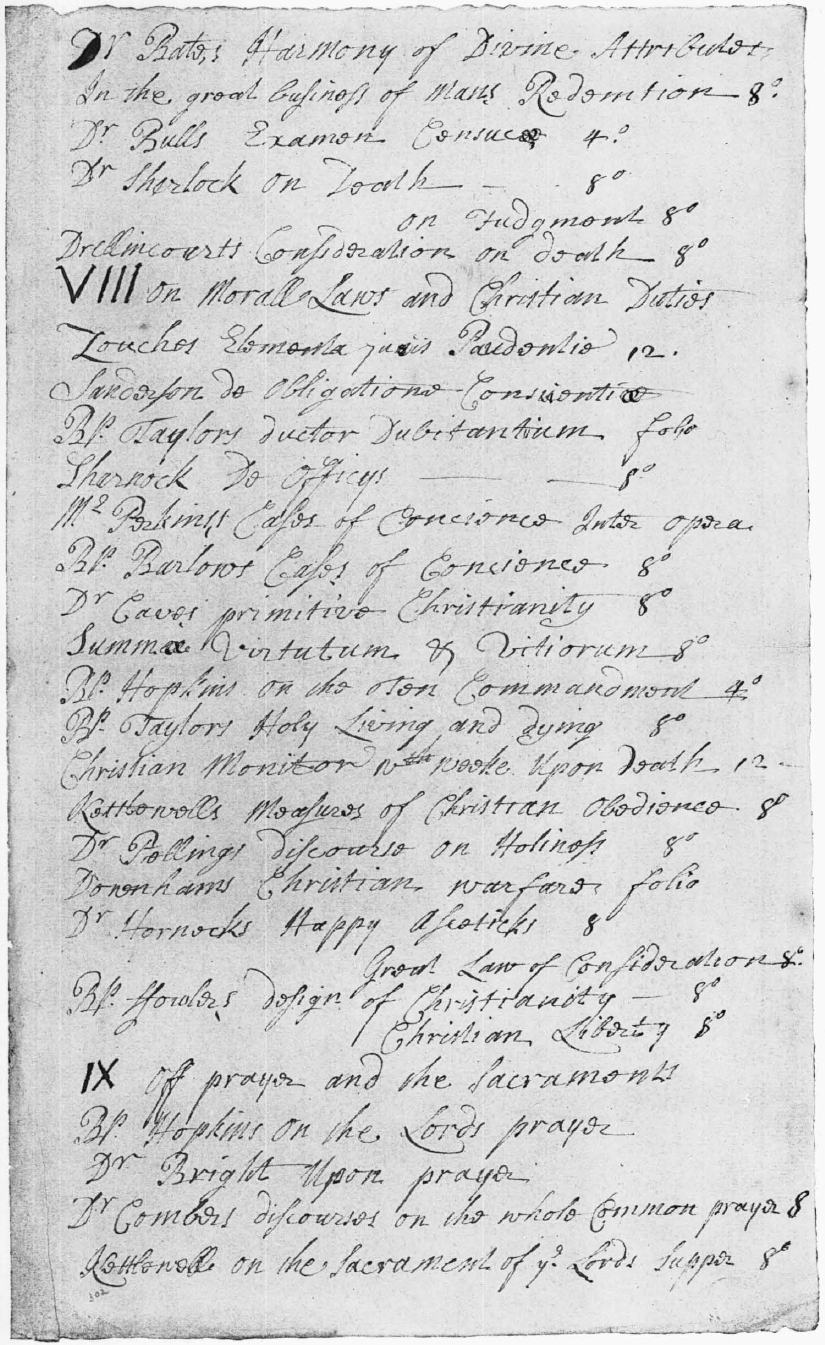 Dr Bates Harmony of Divine Attributes
In the great business of Mans Redemtion 8o.
Dr. Bulls Examen Censuræ 4.o
Dr Sherlock on Death - 8o
on Judgment 8o
Drellincourts Consideration on death 8o
VIII on Morall Laws and Christian Duties
Zouches Elementa juris Prudentie 12.
Sanderson de Obligatione Conscientiæ
Bp. Taylors ductor Dubitantium folio
Sharnock De Officys — — 8o
Mr Perkinss Cases of Concience Inter opera
Bp. Barlows Cases of Concience 8o
Dr Caves primitive Christianity 8o
Summæ Virtutum & Vitiorum 8o
Bp. Hopkins on the Ten Commandment 4o
Bp. Taylors Holy Living and dying 8o
Christian Monitor wth weeke Upon Death 12 -
Kettlewells Measures of Christian Obedience 8o
Dr Pellings discourse on Holiness 8o
Downhams Christian warfare folio
Dr Hornecks Happy Asceticks 8
Great Law of Consideration 8o.
Bp. ffowlers design of Christianity — 8o
Christian Liberty 8o
IX Off prayer and the Sacraments
Bp. Hopkins on the Lords prayer
Dr Bright Upon prayer
Dr Combers discourses on the whole Common prayer 8
Kettlewell on the Sacrament of ye Lords Supper 8o
302